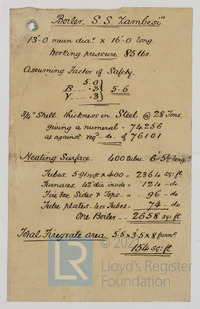 Boiler, S.S. Zambesi"
13'-0 mean dia. x 16'-0 long
Working pressure 85 lbs.
Assuming Factor of Safety.
5.0
B - - .3
Y - - .3
5.6
Shell thickness in Steel @ 28 Tons
giving a numeral = 74256
as against req. do. of 76101
Heating Surface. 400 tubes
Tubes. x 400 = 2364 sq. ft
Furnaces 42" dia inside = 124 - do
Fire box. Sides & Tops = 96 - do
Tube plates. less Tubes. 74 - do
One Boiler - - 2658 sq. ft
Total Firegrate area 5.5 x 3.5 x 8 furns
154 sq. ft
© 20
LR
Lloyd's Register
Foundation